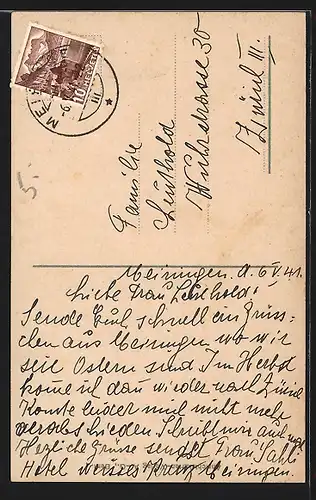 HELVETIA
10
MEI
III
5.
Familie
Leuthold
Wuhrstrasse 30
Zürich III.
Meiringen. d. 6 V 41.
Liebe Frau Leuthold!
Sende Euch schnell ein Grüss=
chen aus Meiringen wo wir
seit Ostern sind Im Herbst
kome ich dan wieder nach Zürich
Konte leider mich nicht mehr
Schreibt mir auch
Herzliche Grüsse sendet Frau
Hotel weisses Kreuz Meiringen.